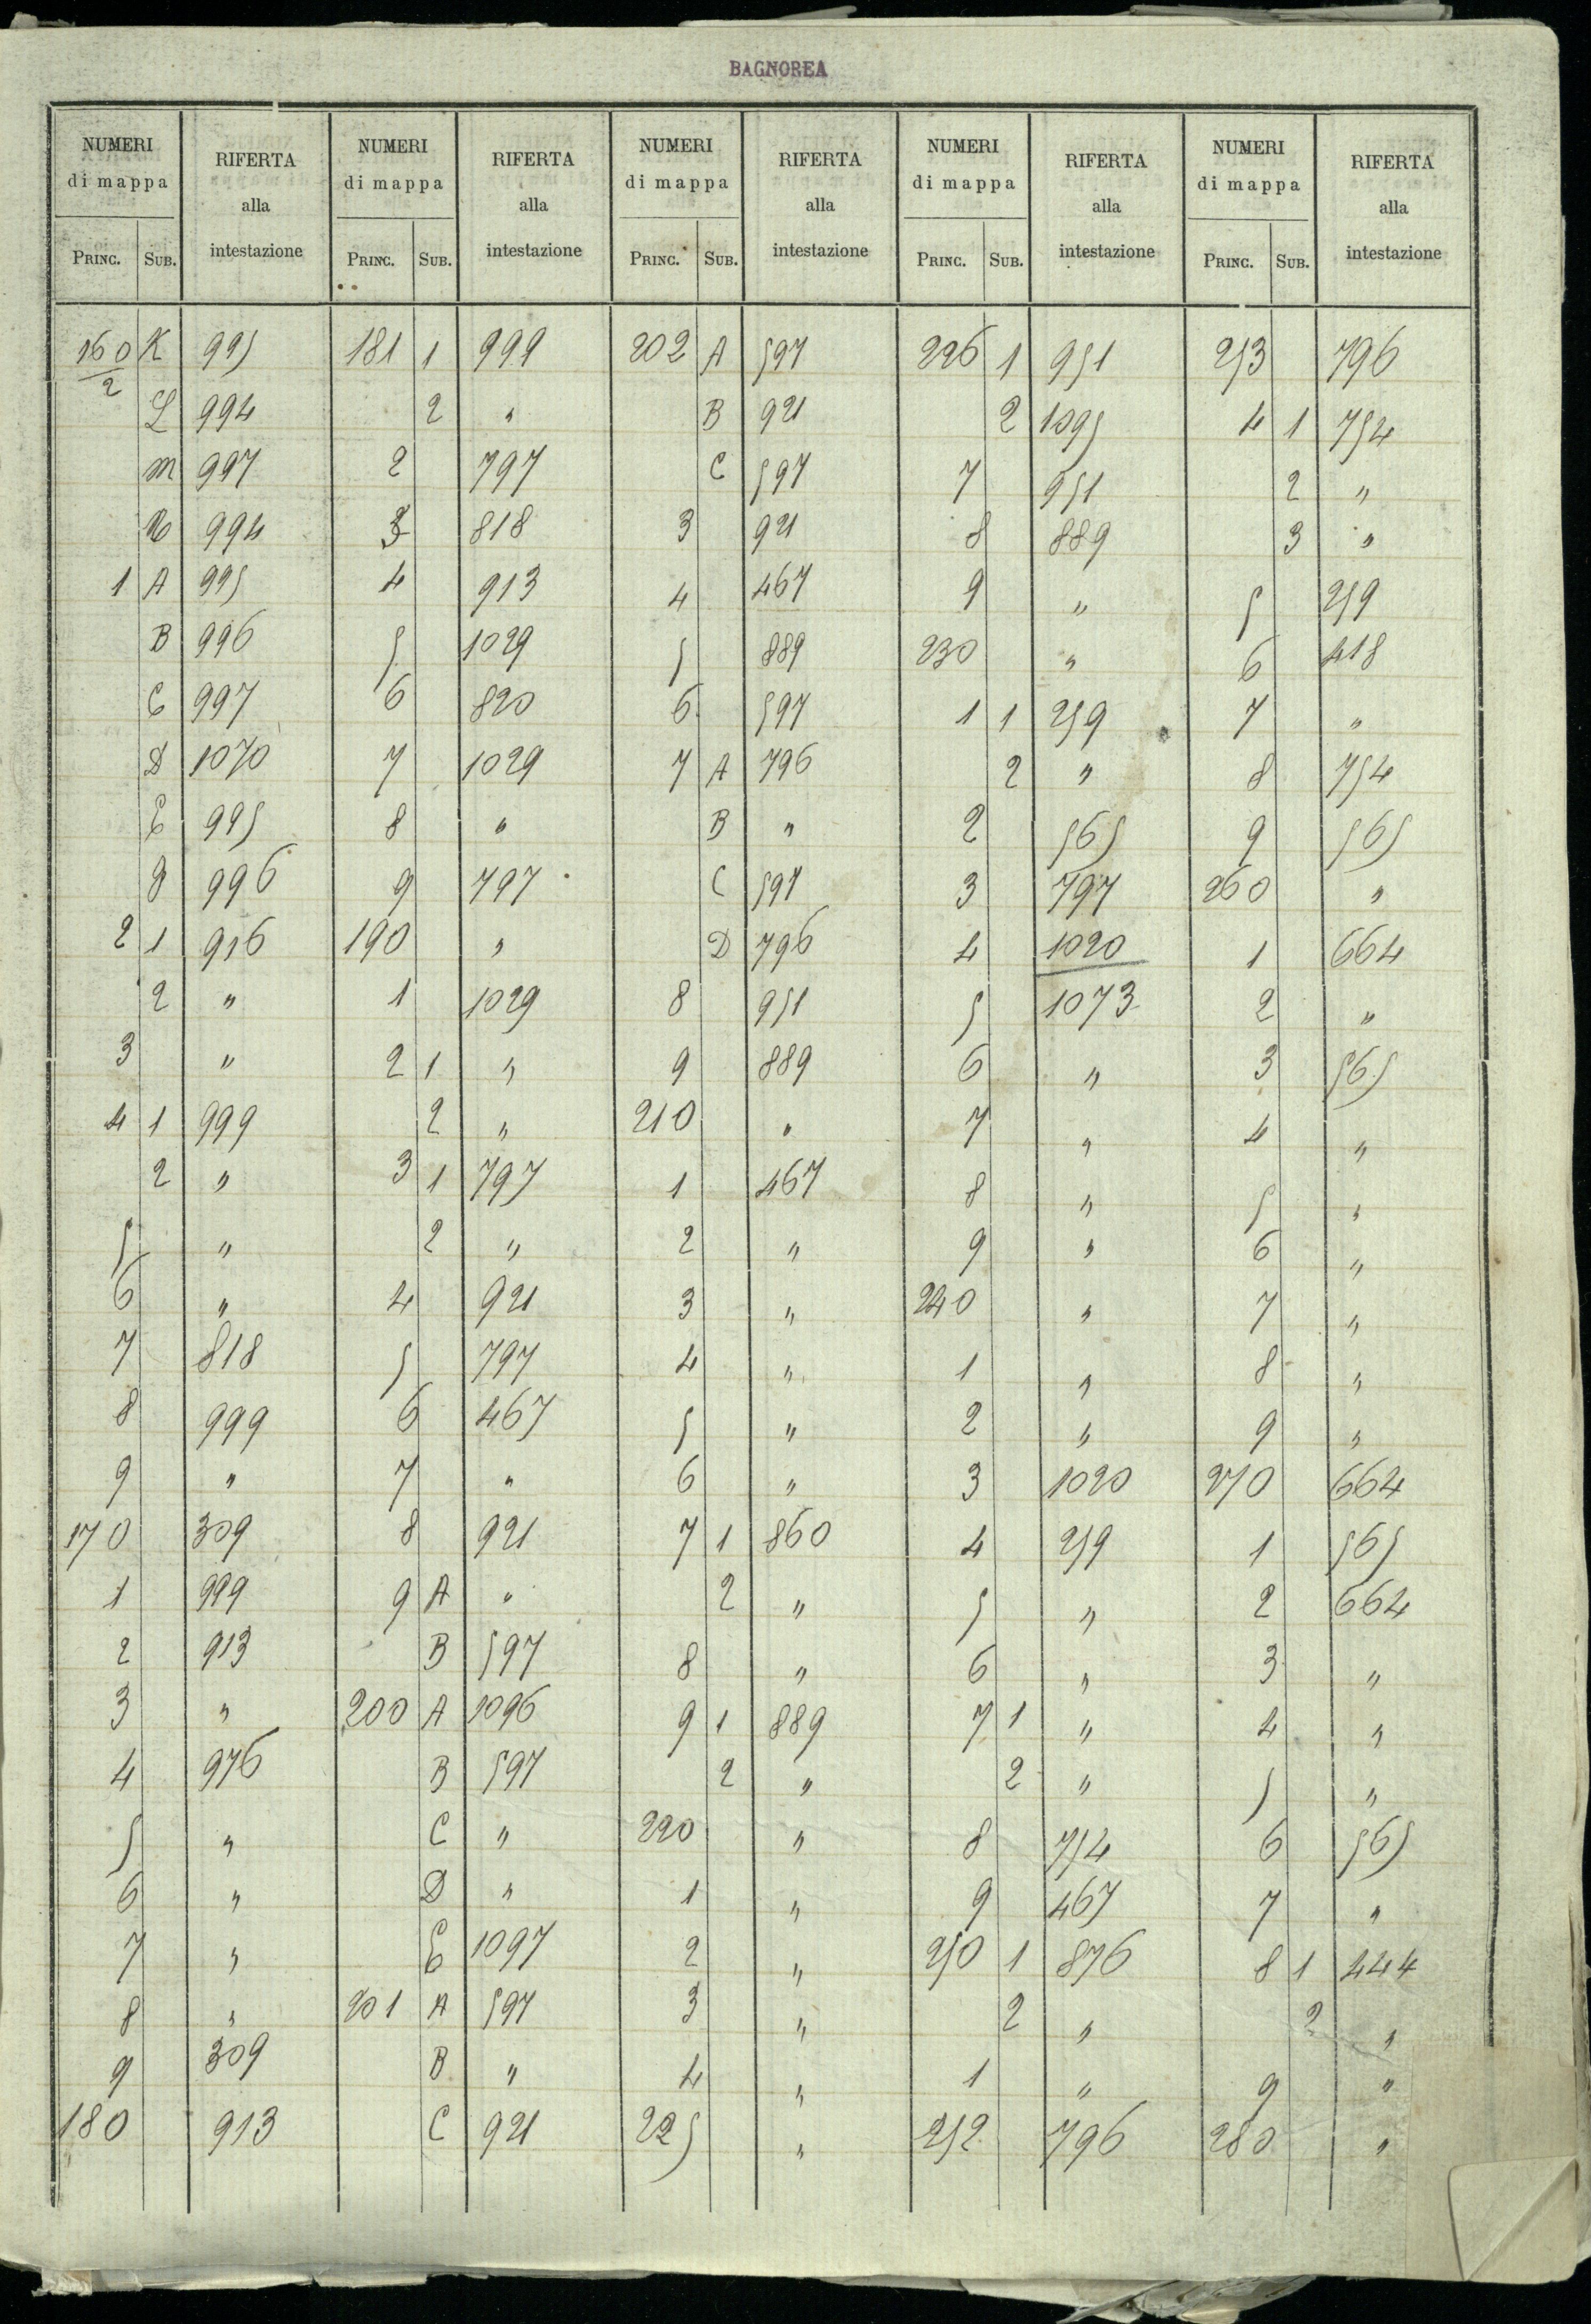 BAGNOREA
NUMERI di mappa RIFERTA alla intestazione NUMERI di mappa RIFERTA alla intestazione NUMERI di mappa RIFERTA alla intestazione NUMERI di mappa RIFERTA alla intestazione NUMERI di mappa RIFERTA alla intestazione
PRINC. SUB. PRINC. SUB. PRINC. SUB. PRINC. SUB. PRINC. SUB.
160/2 K 995 181 1 999 202 A 597 226 1 951 253 796
L 994 2 " B 921 2 1095 4 1 754
M 997 2 797 C 597 7 951 2 "
N 994 3 818 3 921 8 889 3 "
1 A 995 4 913 4 467 9 " 5 259
B 996 5 1029 5 889 230 " 6 418
C 997 6 820 6 597 1 1 259 7 "
D 1070 7 1029 7 A 796 2 " 8 754
E 995 8 " B " 2 565 9 565
996 9 797 C 597 3 797 260 "
2 1 916 190 " D 796 4 1020 1 664
2 " 1 1029 8 951 5 1073 2 "
3 " 2 1 " 9 889 6 " 3 565
4 1 999 2 " 210 " 7 " 4 "
2 " 3 1 797 1 467 8 " 5 "
5 " 2 " 2 " 9 " 6 "
6 " 4 921 3 " 240 " 7 "
7 818 5 797 4 " 1 " 8 "
8 999 6 467 5 " 2 " 9 "
9 " 7 " 6 " 3 1020 270 664
170 309 8 921 7 1 860 4 259 1 565
1 999 9 A " 2 " 5 " 2 664
2 913 B 597 8 " 6 " 3 "
3 " 200 A 1096 9 1 889 7 1 " 4 "
4 976 B 597 2 " 2 " 5 "
5 " C " 220 " 8 754 6 565
6 " D " 1 " 9 467 7 "
7 " E 1097 2 " 250 1 876 8 1 444
8 " 201 A 597 3 " 2 " 2 "
9 309 B " 4 " 1 " 9 "
180 913 C 921 225 " 252 796 280 "